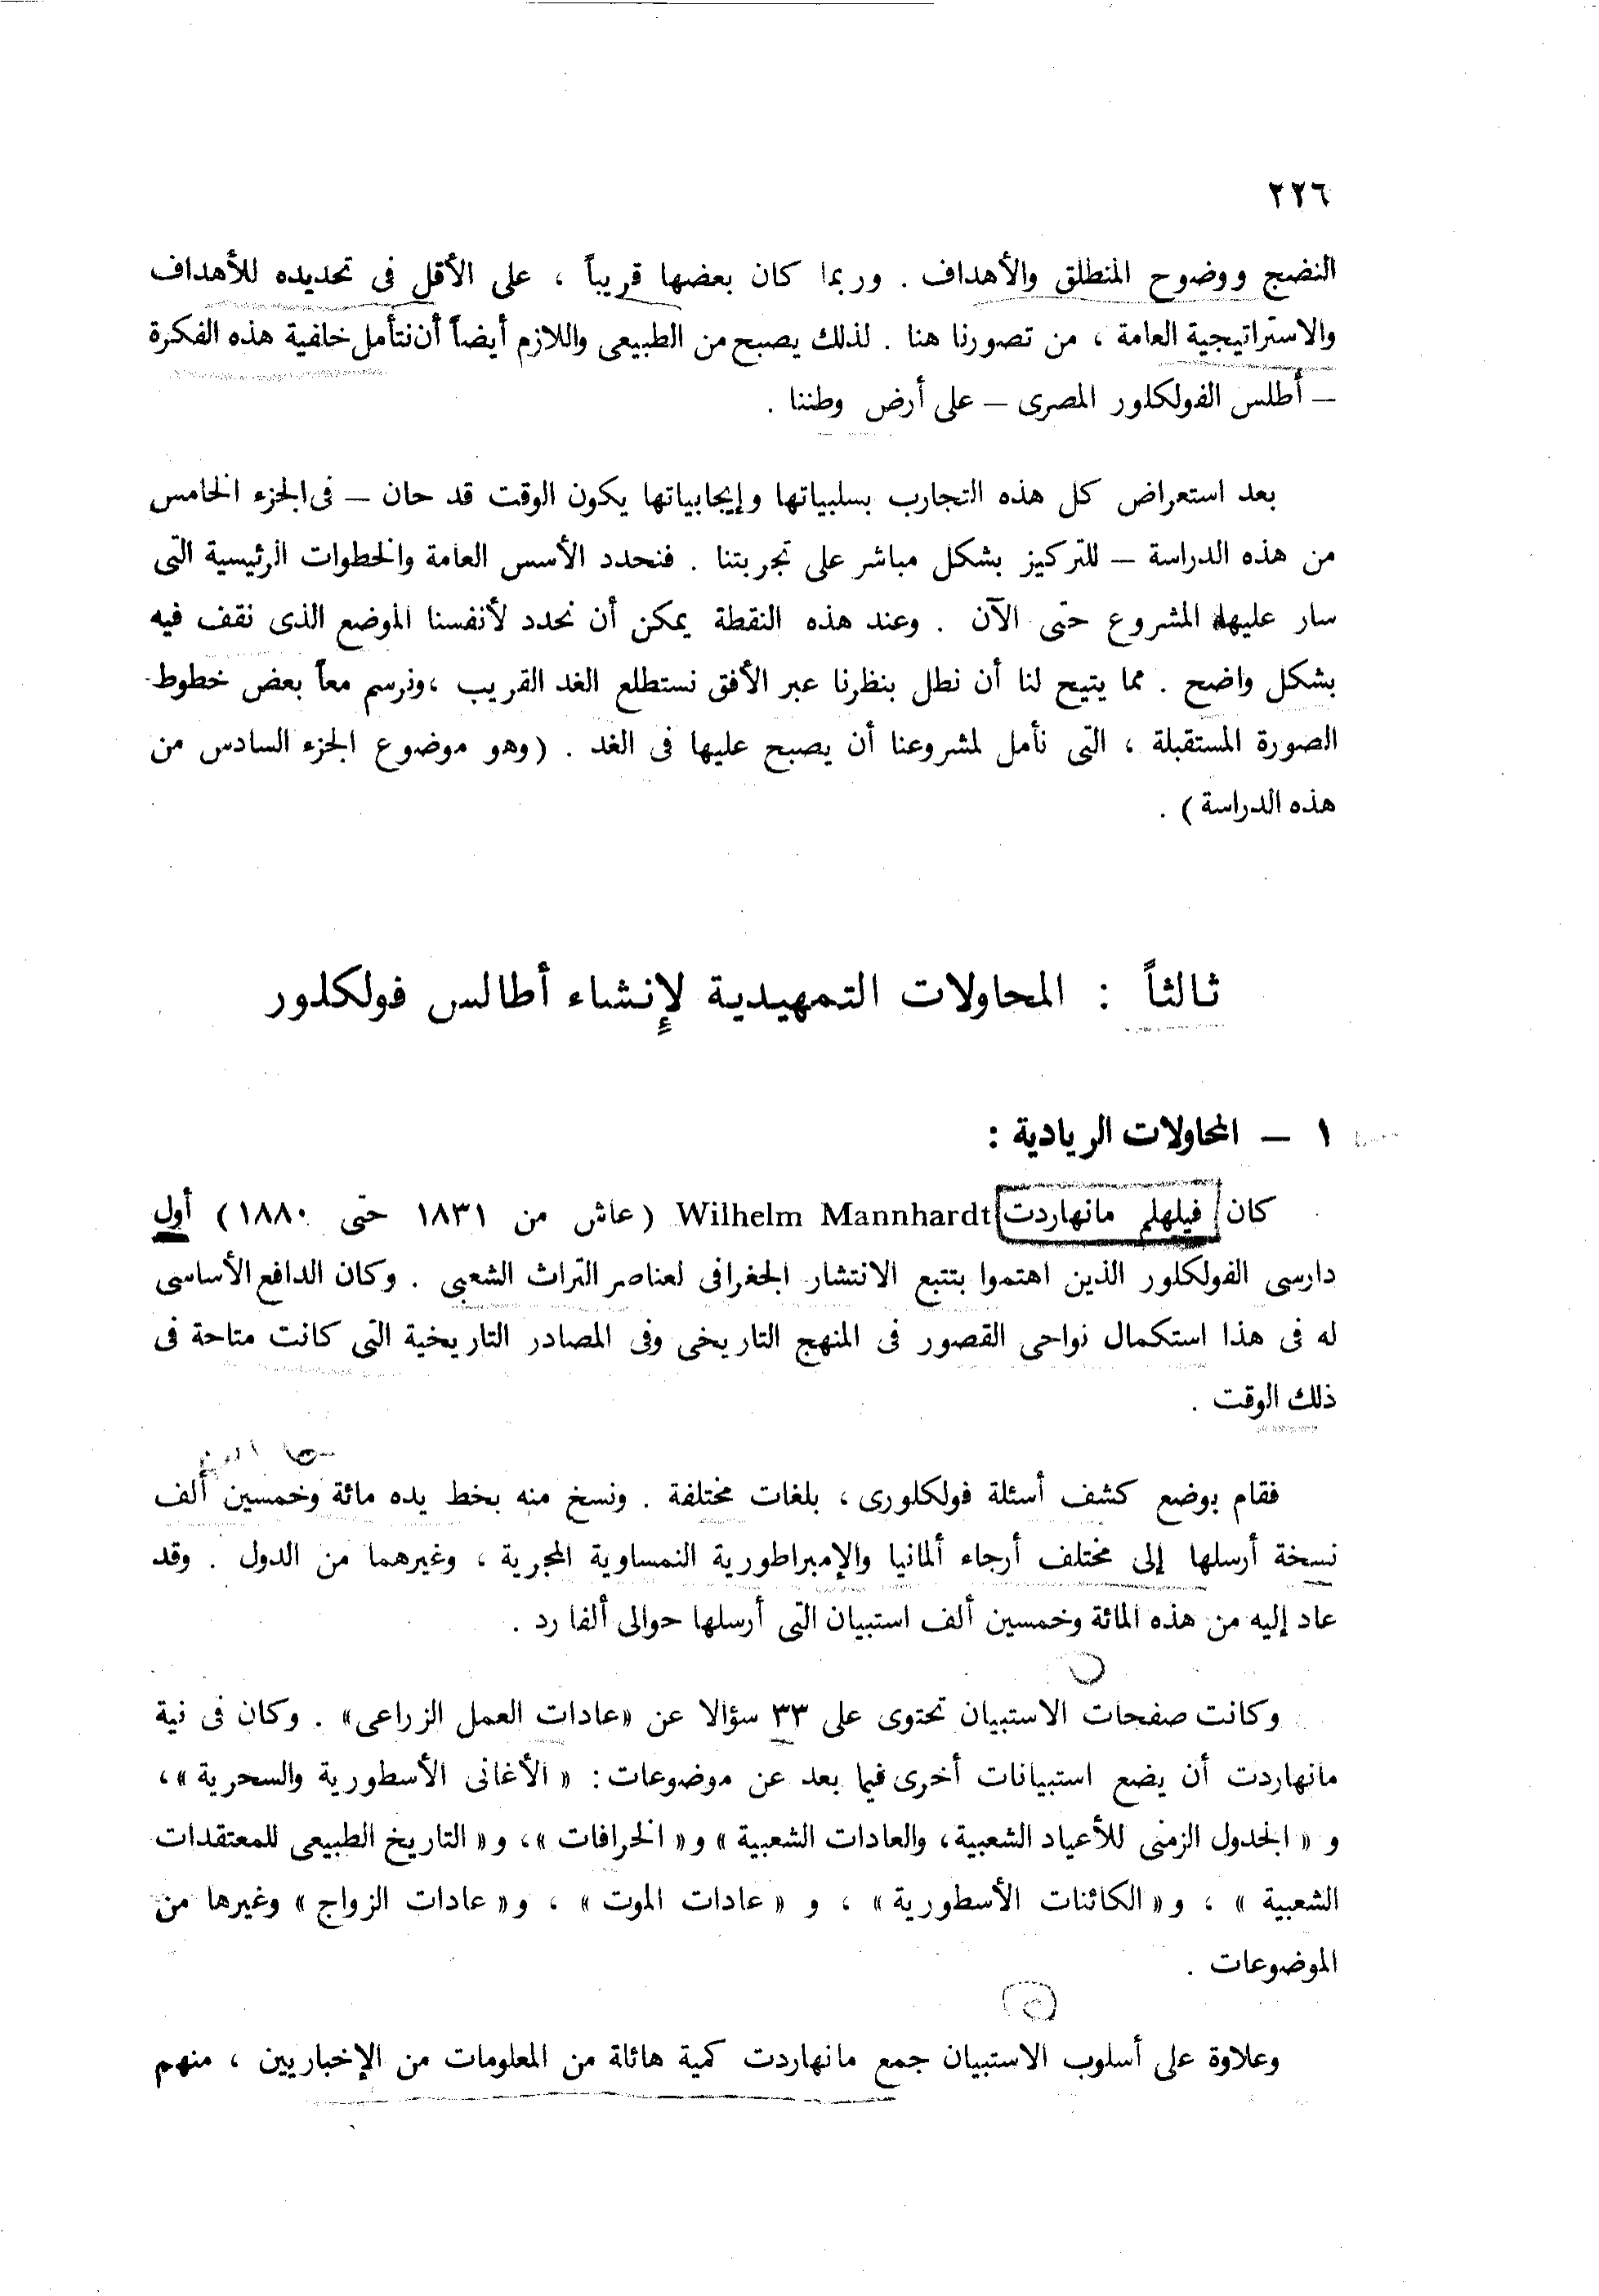 ٢٢٦
النضج ووضوح المنطلق والأهداف . وربما كان بعضها قريباً ، على الأقل فى تحديده للأهداف
والاستراتيجية العامة ، من تصورنا هنا . لذلك يصبح من الطبيعى واللازم أيضاً أن نتأمل خلفية هذه الفكرة
– أطلس الفولكلور المصرى – على أرض وطننا .
بعد استعراض كل هذه التجارب بسلبياتها وإيجابياتها يكون الوقت قد حان – فى الجزء الخامس
من هذه الدراسة – للتركيز بشكل مباشر على تجربتنا . فنحدد الأسس العامة والخطوات الرئيسية التى
سار عليها المشروع حتى الآن . وعند هذه النقطة يمكن أن نحدد لأنفسنا الموضع الذى نقف فيه
بشكل واضح . مما يتيح لنا أن نطل بنظرنا عبر الأفق نستطلع الغد القريب ، ونرسم معاً بعض خطوط
الصورة المستقبلة ، التى نأمل لمشروعنا أن يصبح عليها فى الغد . (وهو موضوع الجزء السادس من
هذه الدراسة ) .
ثالثاً : المحاولات التمهيدية لإنشاء أطالس فولكلور
١ – المحاولات الريادية :
كان فيلهلم مانهاردت Wilhelm Mannhardt (عاش من ١٨٣١ حتى ١٨٨٠) أول
دارسى الفولكلور الذين اهتموا بتتبع الانتشار الجغرافى لعناصر التراث الشعبى . وكان الدافع الأساسى
له فى هذا استكمال نواحى القصور فى المنهج التاريخى وفى المصادر التاريخية التى كانت متاحة فى
ذلك الوقت .
فقام بوضع كشف أسئلة فولكلورى ، بلغات مختلفة . ونسخ منه بخط يده مائة وخمسين ألف
نسخة أرسلها إلى مختلف أرجاء ألمانيا والإمبراطورية النمساوية المجرية ، وغيرهما من الدول . وقد
عاد إليه من هذه المائة وخمسين ألف استبيان التى أرسلها حوالى ألفا رد .
وكانت صفحات الاستبيان تحتوى على ٣٣ سؤالا عن «عادات العمل الزراعى» . وكان فى نية
مانهاردت أن يضع استبيانات أخرى فيما بعد عن موضوعات : « الأغانى الأسطورية والسحرية » ،
و « الجدول الزمنى للأعياد الشعبية ، والعادات الشعبية » و « الخرافات » ، و « التاريخ الطبيعى للمعتقدات
الشعبية » ، و « الكائنات الأسطورية » ، و « عادات الموت » ، و « عادات الزواج » وغيرها من
الموضوعات .
وعلاوة على أسلوب الاستبيان جمع مانهاردت كمية هائلة من المعلومات من الإخباريين ، منهم